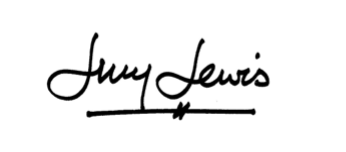 Jerry Lewis